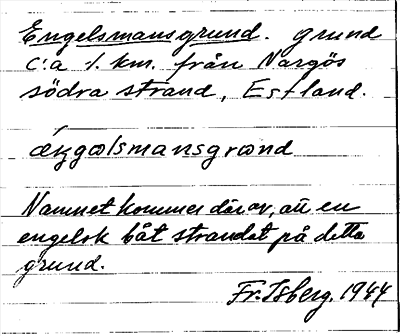 Engelsmansgrund. grund
c:a 1. km. från Nargös
södra strand, Estland.
Namnet kommer därav, att en
engelsk båt strandat på detta
grund.
Fr. Isberg. 1944